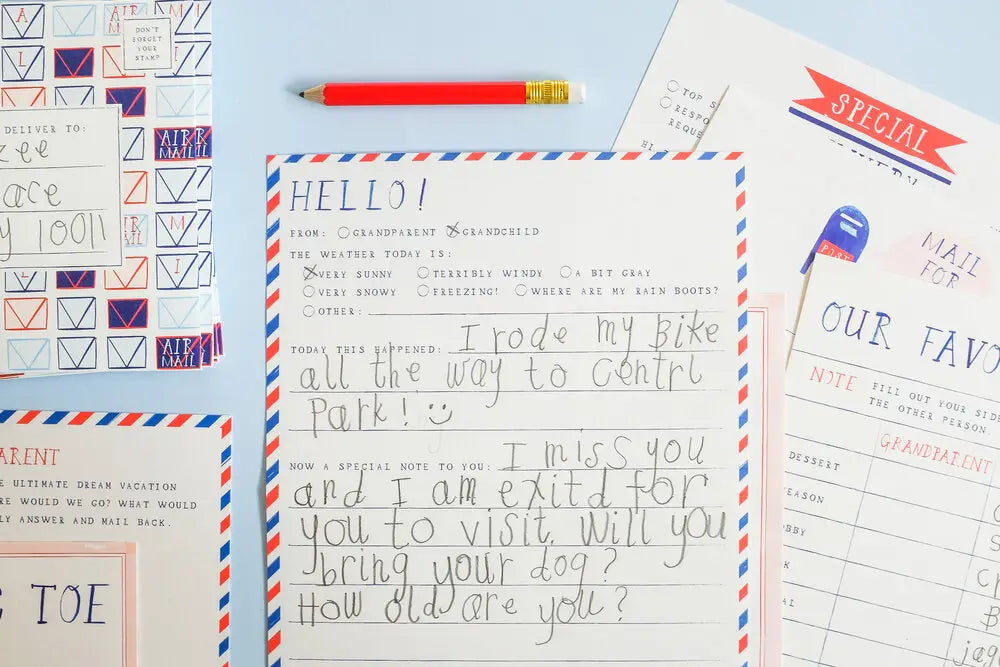 DON'T
FORGET
YOUR
STAMP
AIR
MAIL
DELIVER TO:
zee
ace
y 10011
AIR
MAIL
HELLO!
FROM: GRANDPARENT GRANDCHILD
THE WEATHER TODAY IS:
VERY SUNNY TERRIBLY WINDY A BIT GRAY
VERY SNOWY FREEZING! WHERE ARE MY RAIN BOOTS?
OTHER:
TODAY THIS HAPPENED: I rode my Bike
all the way to Centrl
Park! :)
NOW A SPECIAL NOTE TO YOU: I miss you
and I am exitd for
you to visit. Will you
bring your dog?
How old are you?
ARENT
E ULTIMATE DREAM VACATION
RE WOULD WE GO? WHAT WOULD
LY ANSWER AND MAIL BACK.
TOE
TOP S
RESPO
REQUE
SPECIAL
MAIL
FOR
POST
OUR FAVO
NOTE FILL OUT YOUR SIDE
THE OTHER PERSON.
GRANDPARENT
DESSERT
EASON
BBY
K
AL